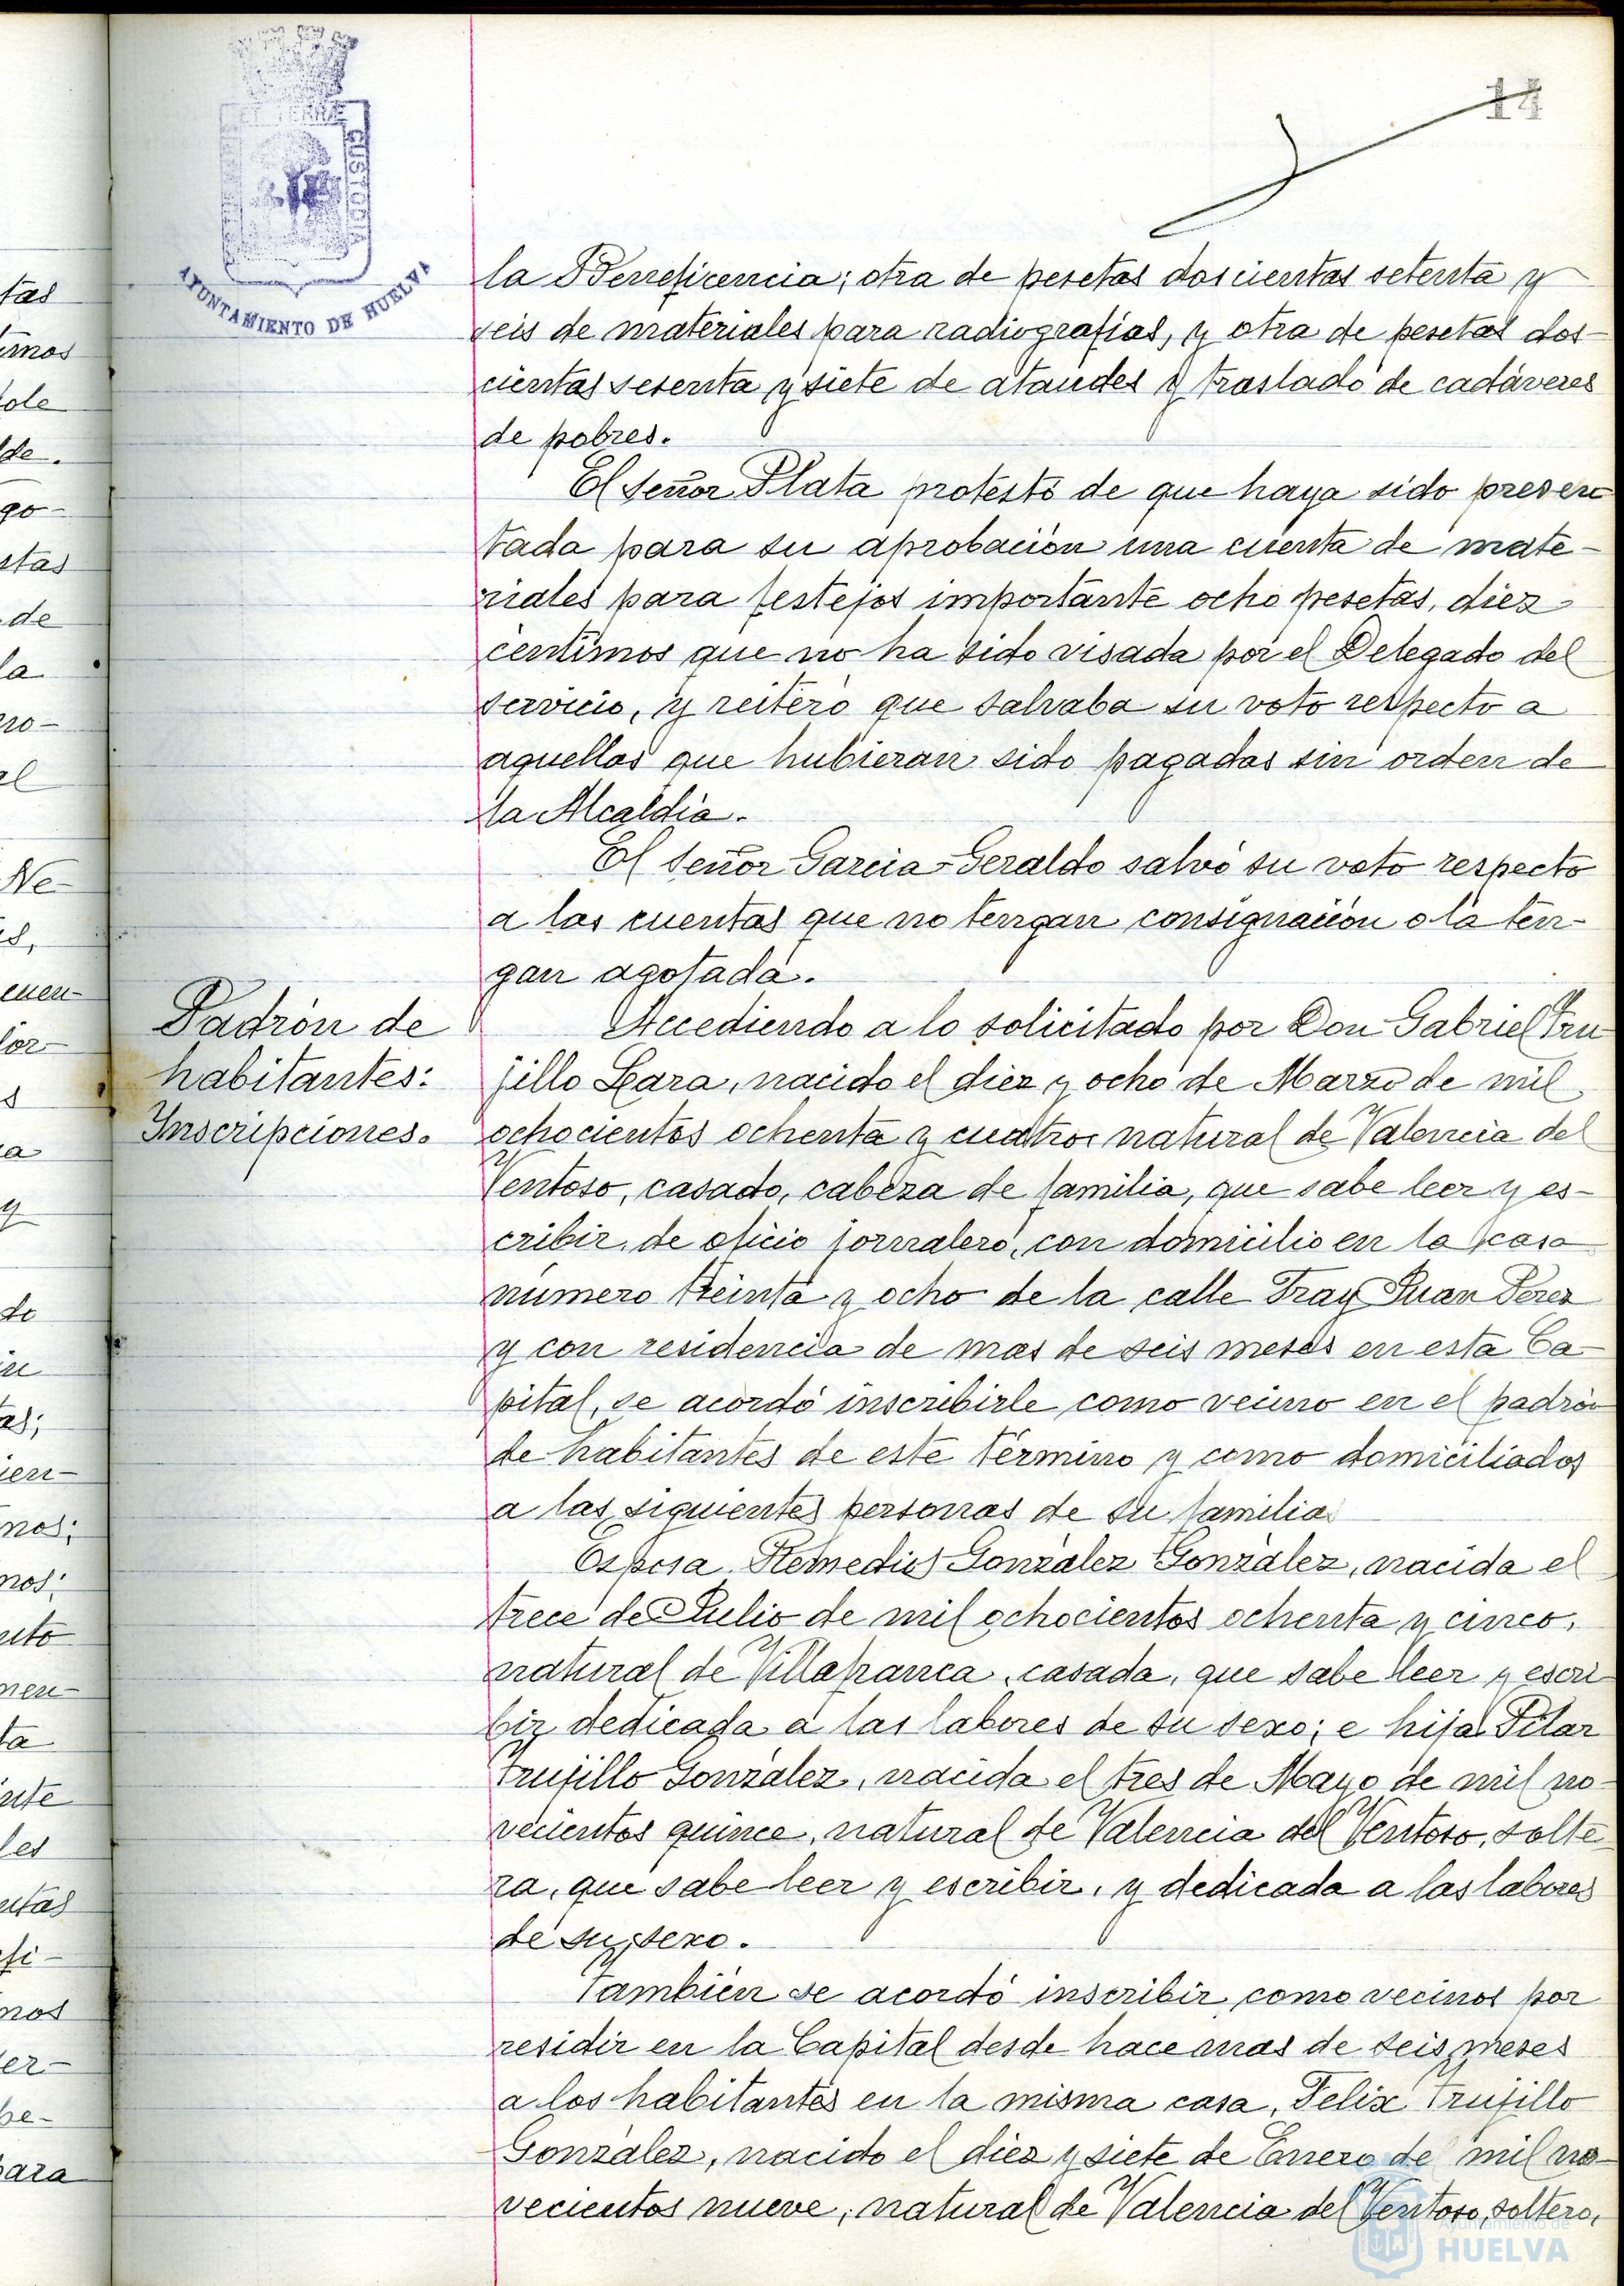 14
ET TERRÆ
CUSTODIA
AYUNTAMIENTO DE HUELVA
la Beneficencia; otra de pesetas doscientas setenta y
seis de materiales para radiografías, y otra de pesetas dos-
cientas sesenta y siete de ataudes y traslado de cadáveres
de pobres.
El Señor Plata protestó de que haya sido presen
tada para su aprobación una cuenta de mate-
riales para festejos importante ocho pesetas, diez
centimos que no ha sido visada por el Delegado del
servicio, y reiteró que salvaba su voto respecto a
aquellas que hubieran sido pagadas sin orden de
la Alcaldía.
El Señor Garcia-Geraldo salvó su voto respecto
a las cuentas que no tengan consignación o la ten-
gan agotada.
Padrón de
habitantes:
Inscripciones.
Accediendo a lo solicitado por Don Gabriel Tru
jillo Lara, nacido el diez y ocho de Marzo de mil
ochocientos ochenta y cuatro, natural de Valencia del
Ventoso, casado, cabeza de familia, que sabe leer y es-
cribir, de oficio jornalero, con domicilio en la casa
número treinta y ocho de la calle Fray Juan Perez
y con residencia de mas de seis meses en esta Ca-
pital, se acordó inscribirle como vecino en el padrón
de habitantes de este término y como domiciliados
a las siguientes personas de su familia
Esposa Remedios González González, nacida el
trece de Julio de mil ochocientos ochenta y cinco,
natural de Villafranca, casada, que sabe leer y escri
bir dedicada a las labores de su sexo; e hija Pilar
Trujillo González, nacida el tres de Mayo de mil no-
vecientos quince, natural de Valencia del Ventoso, solte
ra, que sabe leer y escribir, y dedicada a las labores
de su sexo.
También se acordó inscribir como vecinos por
residir en la Capital desde hace mas de seis meses
a los habitantes en la misma casa, Felix Trujillo
González, nacido el diez y siete de Enero de mil no-
vecientos nueve, natural de Valencia del Ventoso, soltero,
Ayuntamiento de
HUELVA